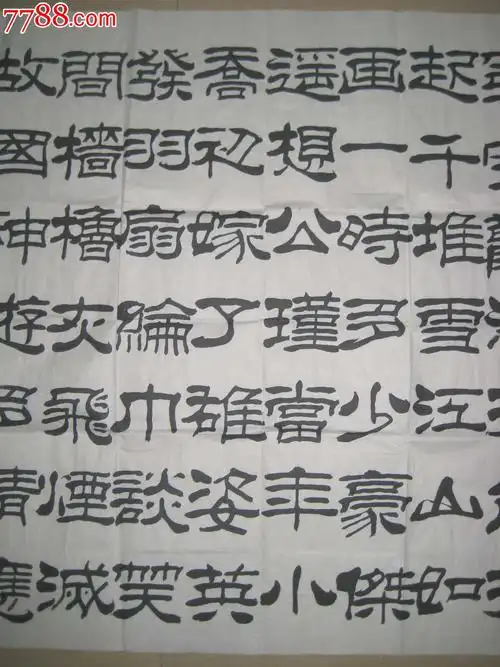 7788.com
起千堆雪江山如
画一時多少豪傑
遥想公瑾當年小
喬初嫁了雄姿英
發羽扇綸巾談笑
間檣櫓灰飛煙滅
故國神游多情應